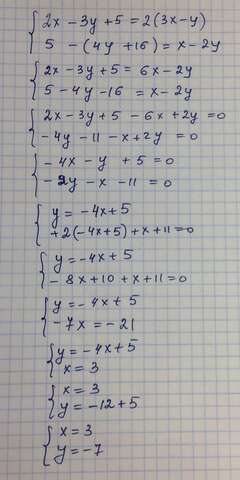 2x - 3y + 5 = 2(3x - y)
5 - (4y + 16) = x - 2y
2x - 3y + 5 = 6x - 2y
5 - 4y - 16 = x - 2y
2x - 3y + 5 - 6x + 2y = 0
- 4y - 11 - x + 2y = 0
- 4x - y + 5 = 0
- 2y - x - 11 = 0
y = - 4x + 5
+ 2(- 4x + 5) + x + 11 = 0
y = - 4x + 5
- 8x + 10 + x + 11 = 0
y = - 4x + 5
- 7x = - 21
y = - 4x + 5
x = 3
x = 3
y = - 12 + 5
x = 3
y = - 7